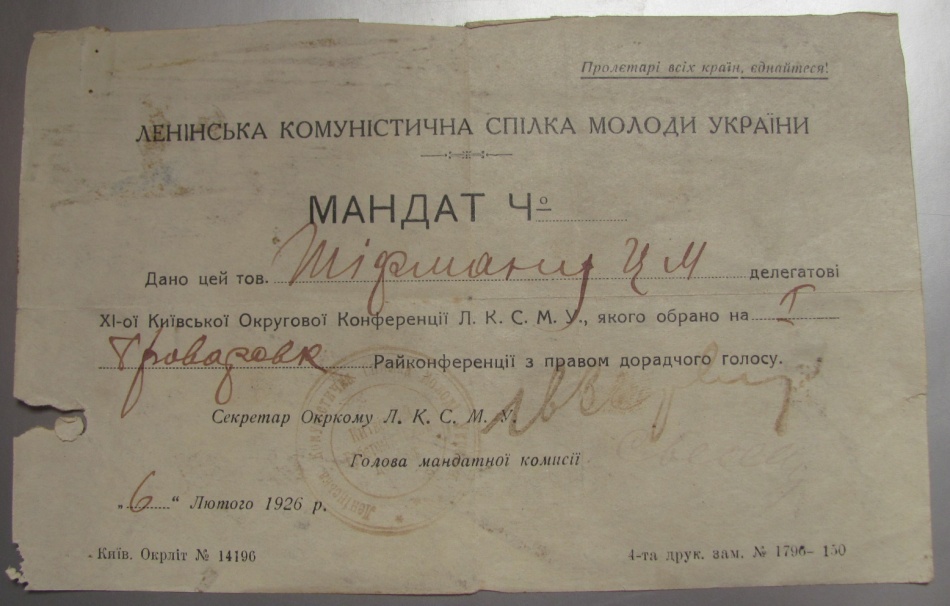 Пролєтарі всіх країн, єднайтеся!
ЛЕНІНСЬКА КОМУНІСТИЧНА СПІЛКА МОЛОДИ УКРАЇНИ
МАНДАТ Чо
Дано цей тов. Шіфману Ц М делегатові
XI-ої Київської Округової Конференції Л. К. С. М. У., якого обрано на I
Броварськ Райконференції з правом дорадчого голосу.
Секретар Окркому Л. К. С. М. У.
Голова мандатної комисії
„6“ Лютого 1926 р.
Київ. Окрліт № 14196
4-та друк. зам. № 1796-150